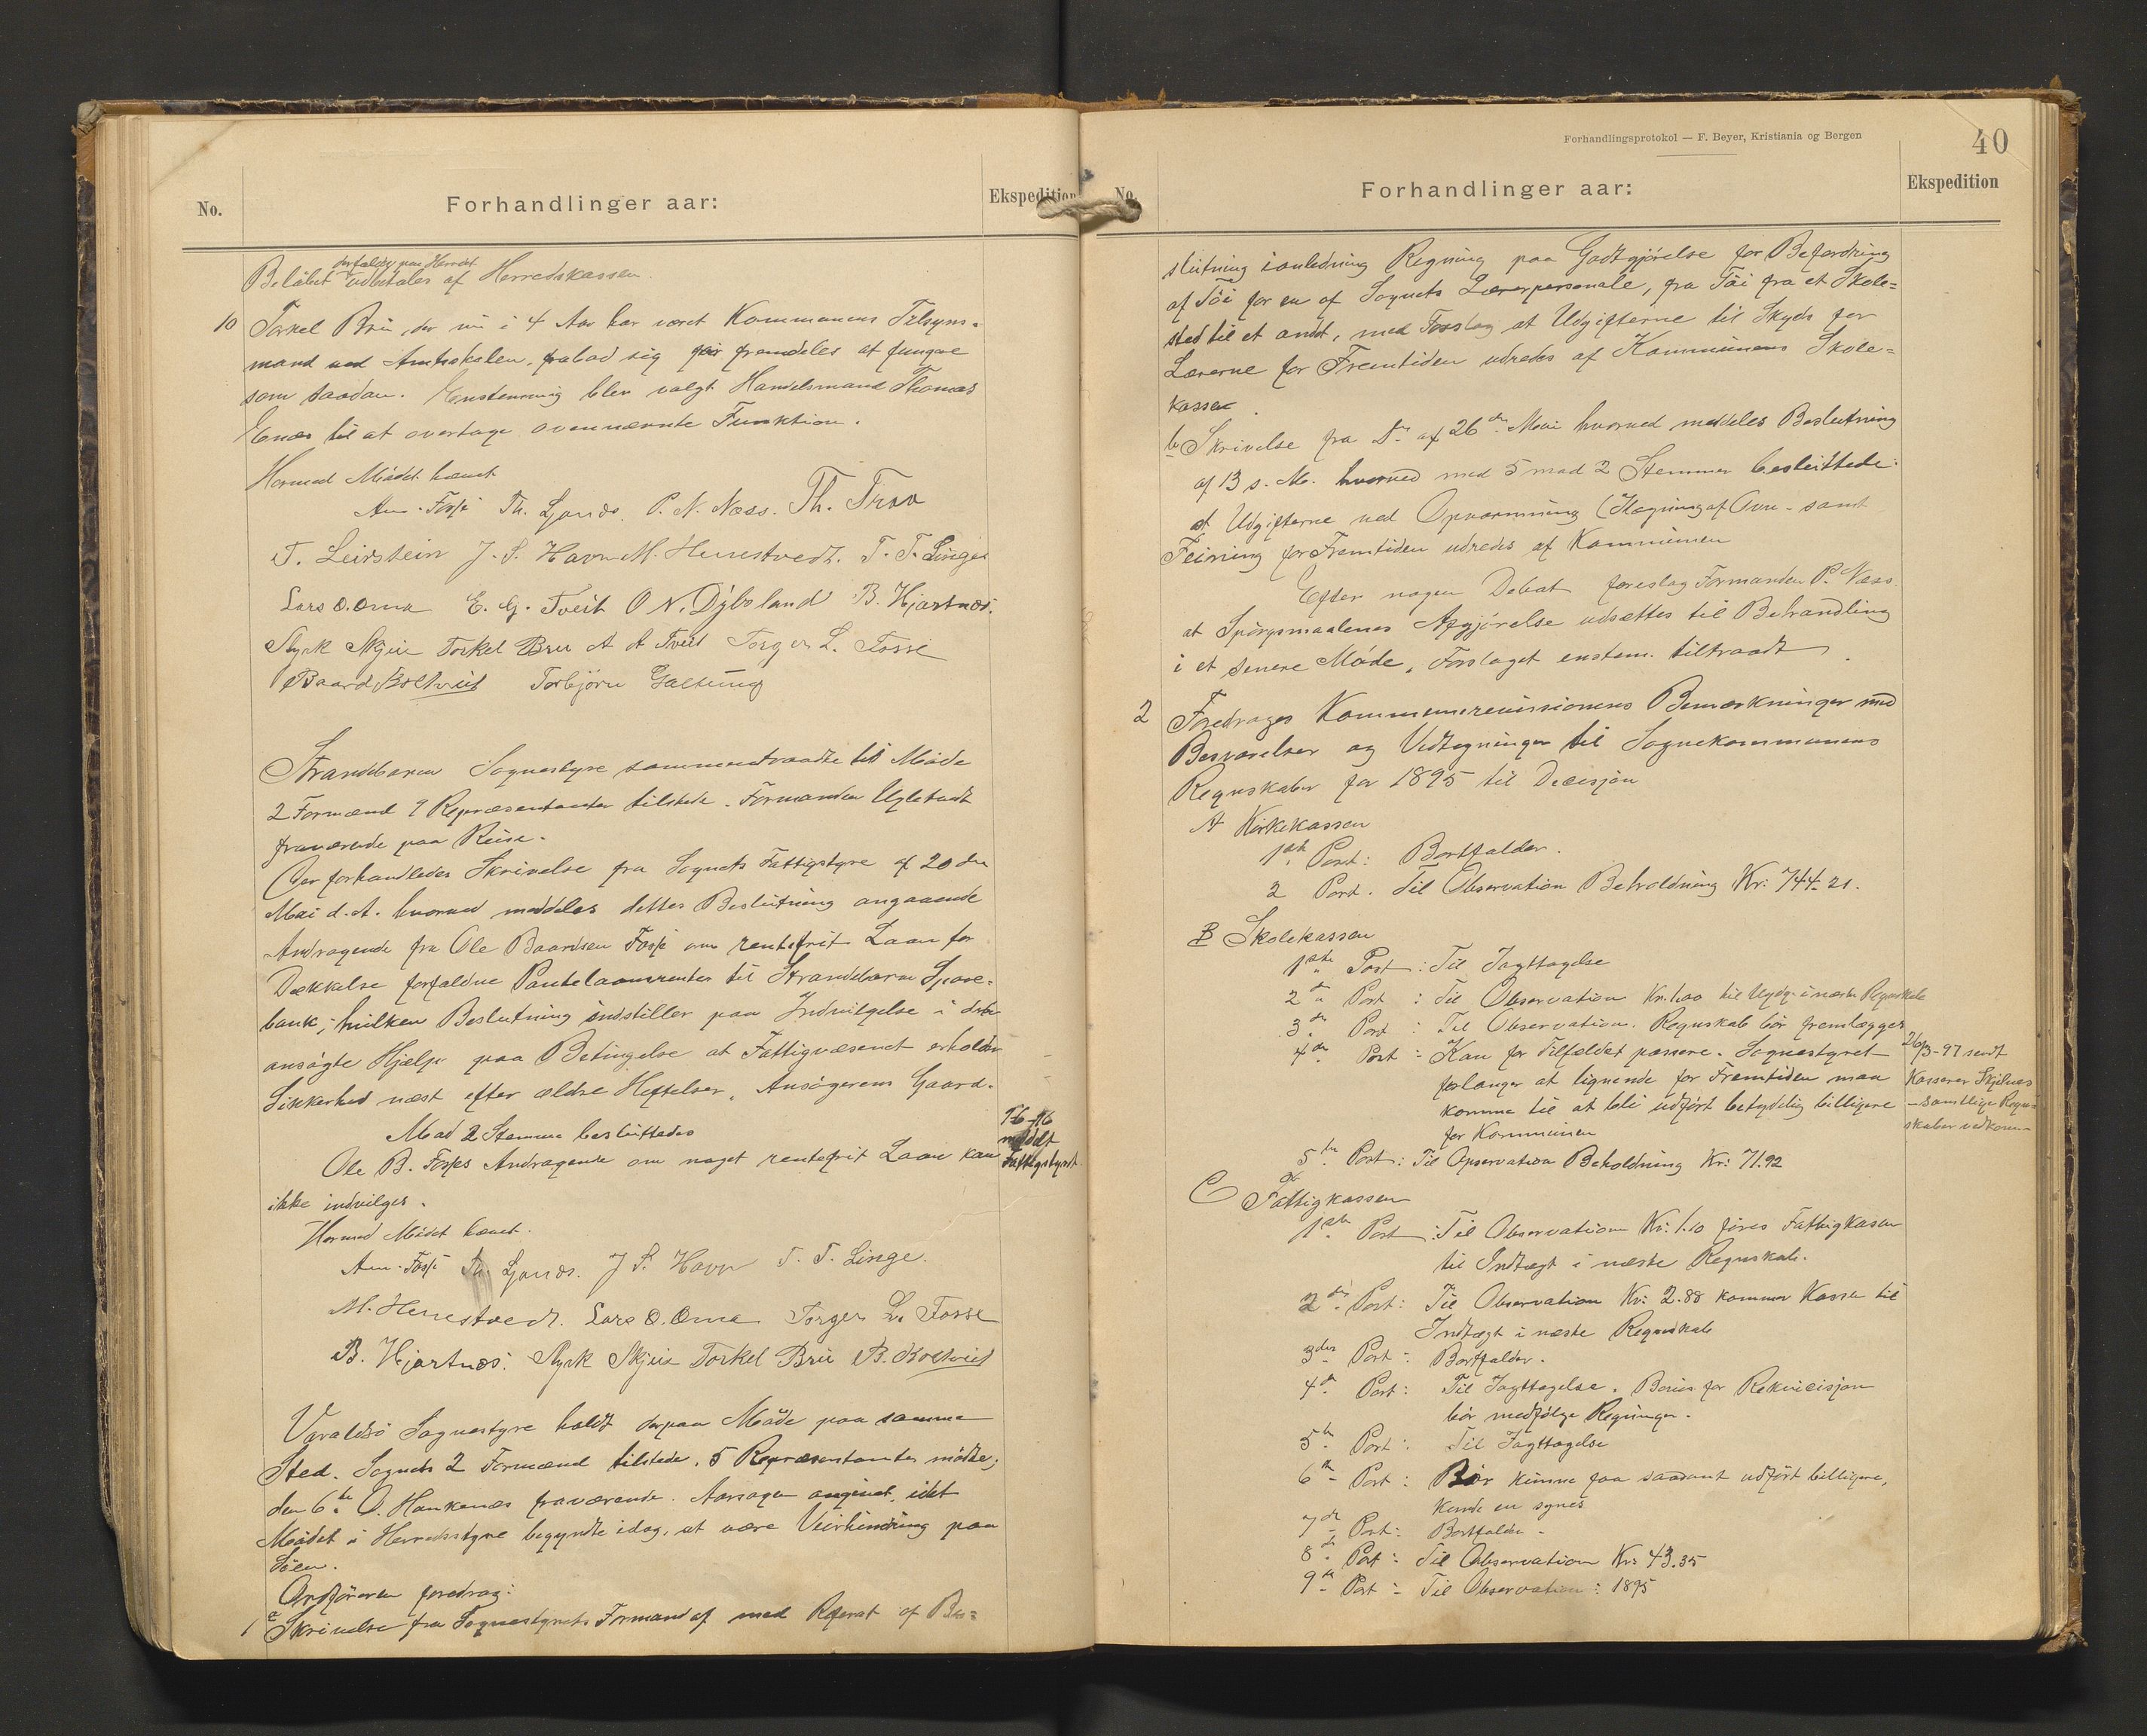 No.
Forhandlinger aar:
Ekspedition
Beløbet derfalder paa Herredet udbetales af Herredskassen.
10 Torkel Bru, der nu i 4 Aar har været Kommunens Tilsyns-
mand ved Amtsskolen, frabad sig fremdeles at fungere
som saadan. Enstemmig blev valgt Handelsmand Thomas
Enæs til at overtage ovennævnte Funktion.
Hermed Mødet hævet
Am. Fosse Th. Ljones. P. N. Næss. Th. Trøo
T. Leirstein J. S. Havn M. Hennestvedt. T. T. Linge
Lars O. Oma E. G. Tveit O N. Dybsland B. Hjartnes.
Styrk Skjeie Torkel Bru A A Tveit Torger L. Fosse
Baard Koltveit Torbjørn Galtung
Strandebarm Sognestyre sammentraadte til Møde
2 Formænd 9 Repræsentanter tilstede. Formanden Ugletvedt
fraværende paa Reise.
Der forhandledes Skrivelse fra Sognets Fattigstyre af 20de
Mai d. A. hvorved meddeles dettes Beslutning angaaende
Andragende fra Ole Baardsen Fosse om rentefrit Laan for
Dækkelse forfaldne Pantelaansrenter til Strandebarm Spare-
bank; hvilken Beslutning indstiller paa Indvilgelse i den
ansøgte Hjælp paa Betingelse at Fattigvæsenet erholder
Sikkerhed næst efter ældre Heftelser, Ansøgerens Gaard.
Mod 2 Stemmer besluttedes
Ole B. Fosses Andragende om noget rentefrit Laan kan
ikke indvilges.
meddelt
Fattigstyret
Hermed Mødet hævet.
Am. Fosse Th. Ljones. J S. Havn T. T. Linge.
M. Hennestvedt. Lars O. Oma Torger L. Fosse
B. Hjartnes. Styrk Skjeie Torkel Bru B. Koltveit
Varaldsø Sognestyre holdt derpaa Møde paa samme
Sted. Sognets 2 Formænd tilstede. 5 Repræsentanter mødte;
den 6te O. Haukenæs fraværende. Aarsagen angivet, idet
Mødet i Herredsstyre begyndte idag, at være Veirhindring paa
Søen.
Ordføreren foredrog:
1 a Skrivelse fra Sognestyrets Formand af med Referat af Bes=
Forhandlingsprotokol — F. Beyer, Kristiania og Bergen
40
No.
Forhandlinger aar:
Ekspedition
slutning i anledning Regning paa Godtgjørelse for Befordring
af Tøi for en af Sognets Lærerpersonale, fra Tøi fra et Skole=
sted til et andet, med Forslag at Udgifterne til Skyds for
Lærerne for Fremtiden udredes af Kommunens Skole=
kasse.
b Skrivelse fra Ds af 26de Mai hvorved meddeles Beslutning
af 13 s. M. hvorved med 5 mod 2 Stemmer besluttede:
at Udgifterne ved Opvarmning (Lægning af Ovn - samt
Feining for Fremtiden udredes af Kommunen
Efter nogen Debat foreslog Formanden P. Næss.
at Spørgsmaalenes Afgjørelse udsættes til Behandling
i et senere Møde. Forslaget enstem. tiltraadt.
2 Foredroges Kommunerevisionens Bemærkninger med
Besvarelser og Vedtegninger til Sognekommunens
Regnskaber for 1895 til Decisjon
A Kirkekassen
1ste Post: Bortfalder.
2 Post. Til Observation Beholdning Kr: 744.21.
B Skolekassen
1ste Post: Til Iagttagelse
2den Post: Til Observation Kr. 1.00 til Udg. i næste Regnskab
3die Post: Til Observation. Regnskab bør fremlægges
4de Post: Kan for Tilfældet passere. Sognestyret
forlanger at lignende for Fremtiden maa
komme til at bli udført betydelig billigere
for Kommunen
26/3-97 sendt
Kasserer Skjelnes
- samtlige Regn-
skaber vedkom-
5te Post: Til Opservation Beholdning Kr: 71.92
C Fattigkassen
1ste Post: Til Observation Kr. 1.10 føres Fattigkassen
til Indtægt i næste Regnskab.
2den Post: Til Observation Kr: 2.88 kommer Kassen til
Indtægt i næste Regnskab
3die Post: Bortfalder.
4de Post: Til Iagttagelse. Bevis for Rekvisisjon
bør medfølge Regninger.
5te Post: Til Iagttagelse
6te Post: Bør kunne faa saadant udført billigere,
kunde en synes
7de Post: Bortfalder.
8de Post: Til Observation Kr: 43.35
9de Post: Til Observation: 1895